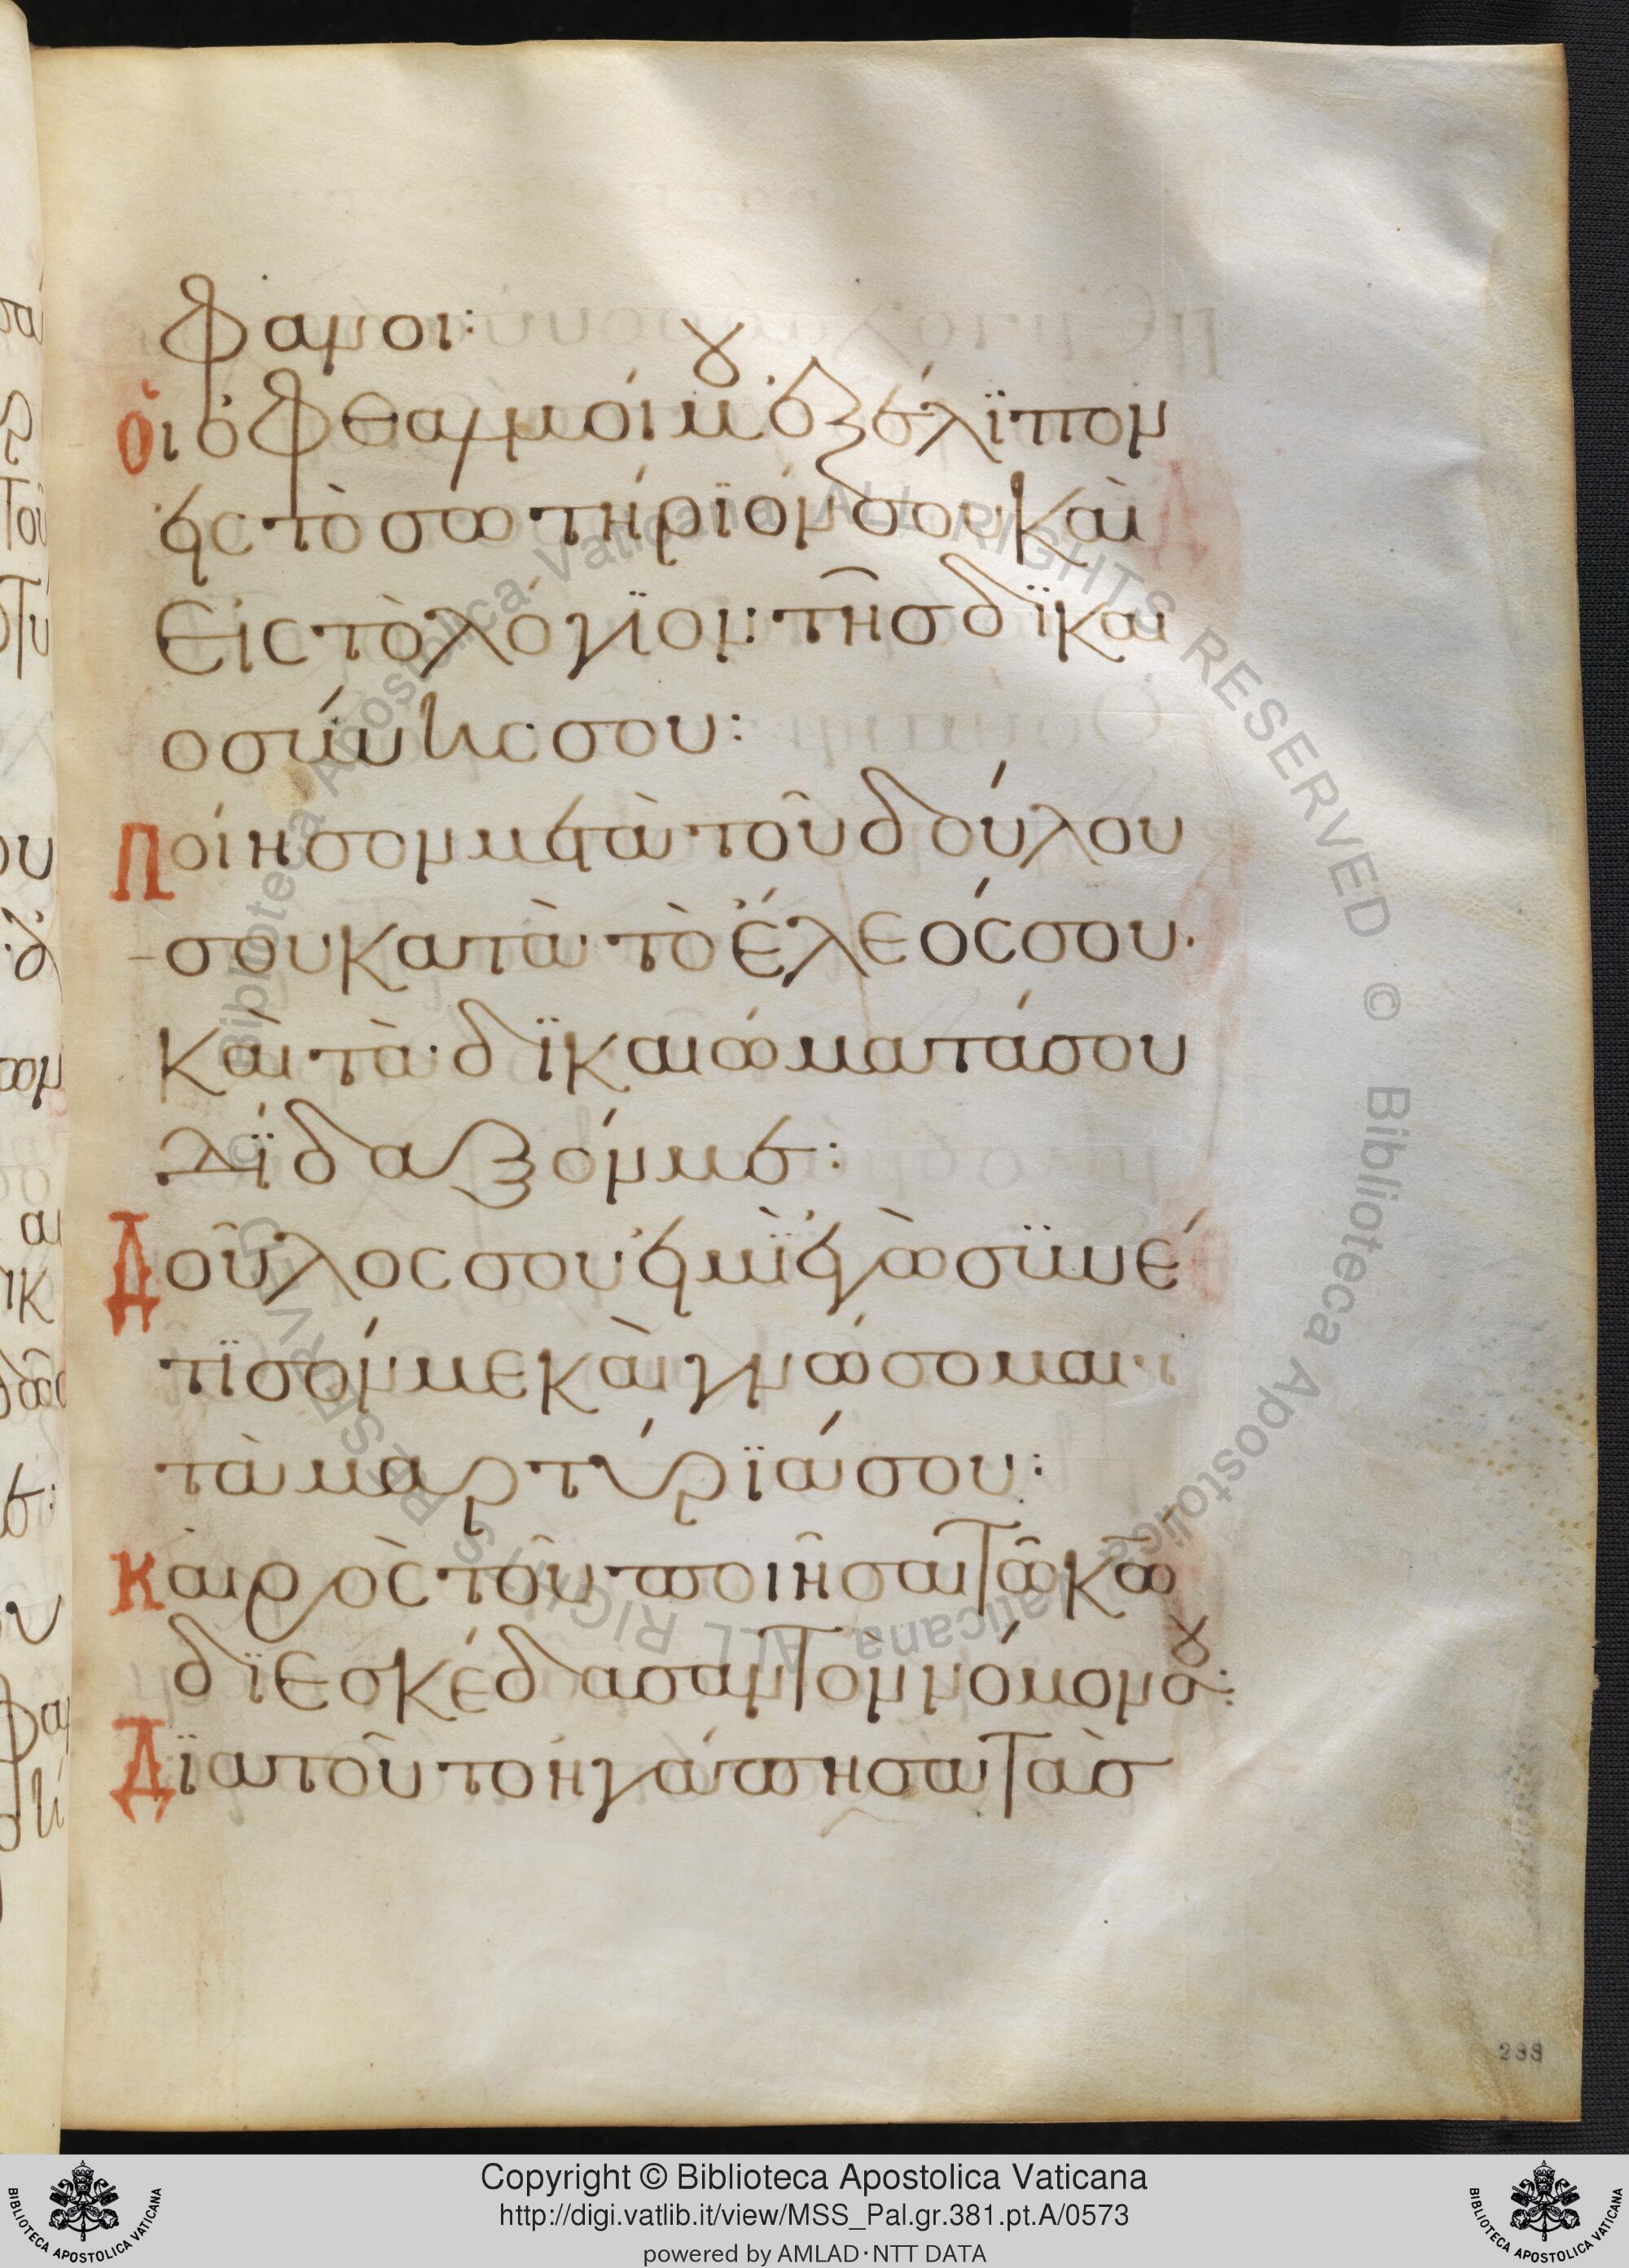 φανοι:
ὀι ὀφθαλμόι μου ἐξέλϊπον
ἐις τὸ σωτήρϊόν σου καὶ
εἰς τὸ λόγϊον τῆσ δϊκαι
οσύνης σου:
Ποίησον μετὰ τοῦ δούλου
σου κατὰ τὸ ἔλεός σου·
Καὶ τὰ δϊκαιώματά σου
Δίδαξόν με:
Δοῦλος σου ἐιμὶ ἐγὼ συνέ
τϊσόν με καὶ γνώσομαι
τὰ μαρτύρϊά σου:
Καιρὸς τοῦ ποιῆσαι τῶ κῶ
δϊεσκέδασαν τὸν νόμον σου:
Δϊατοῦτο ἠγάπησα τὰσ
288
Copyright © Biblioteca Apostolica Vaticana
http://digi.vatlib.it/view/MSS_Pal.gr.381.pt.A/0573
powered by AMLAD·NTT DATA
BIBLIOTECA APOSTOLICA VATICANA
BIBLIOTECA APOSTOLICA VATICANA